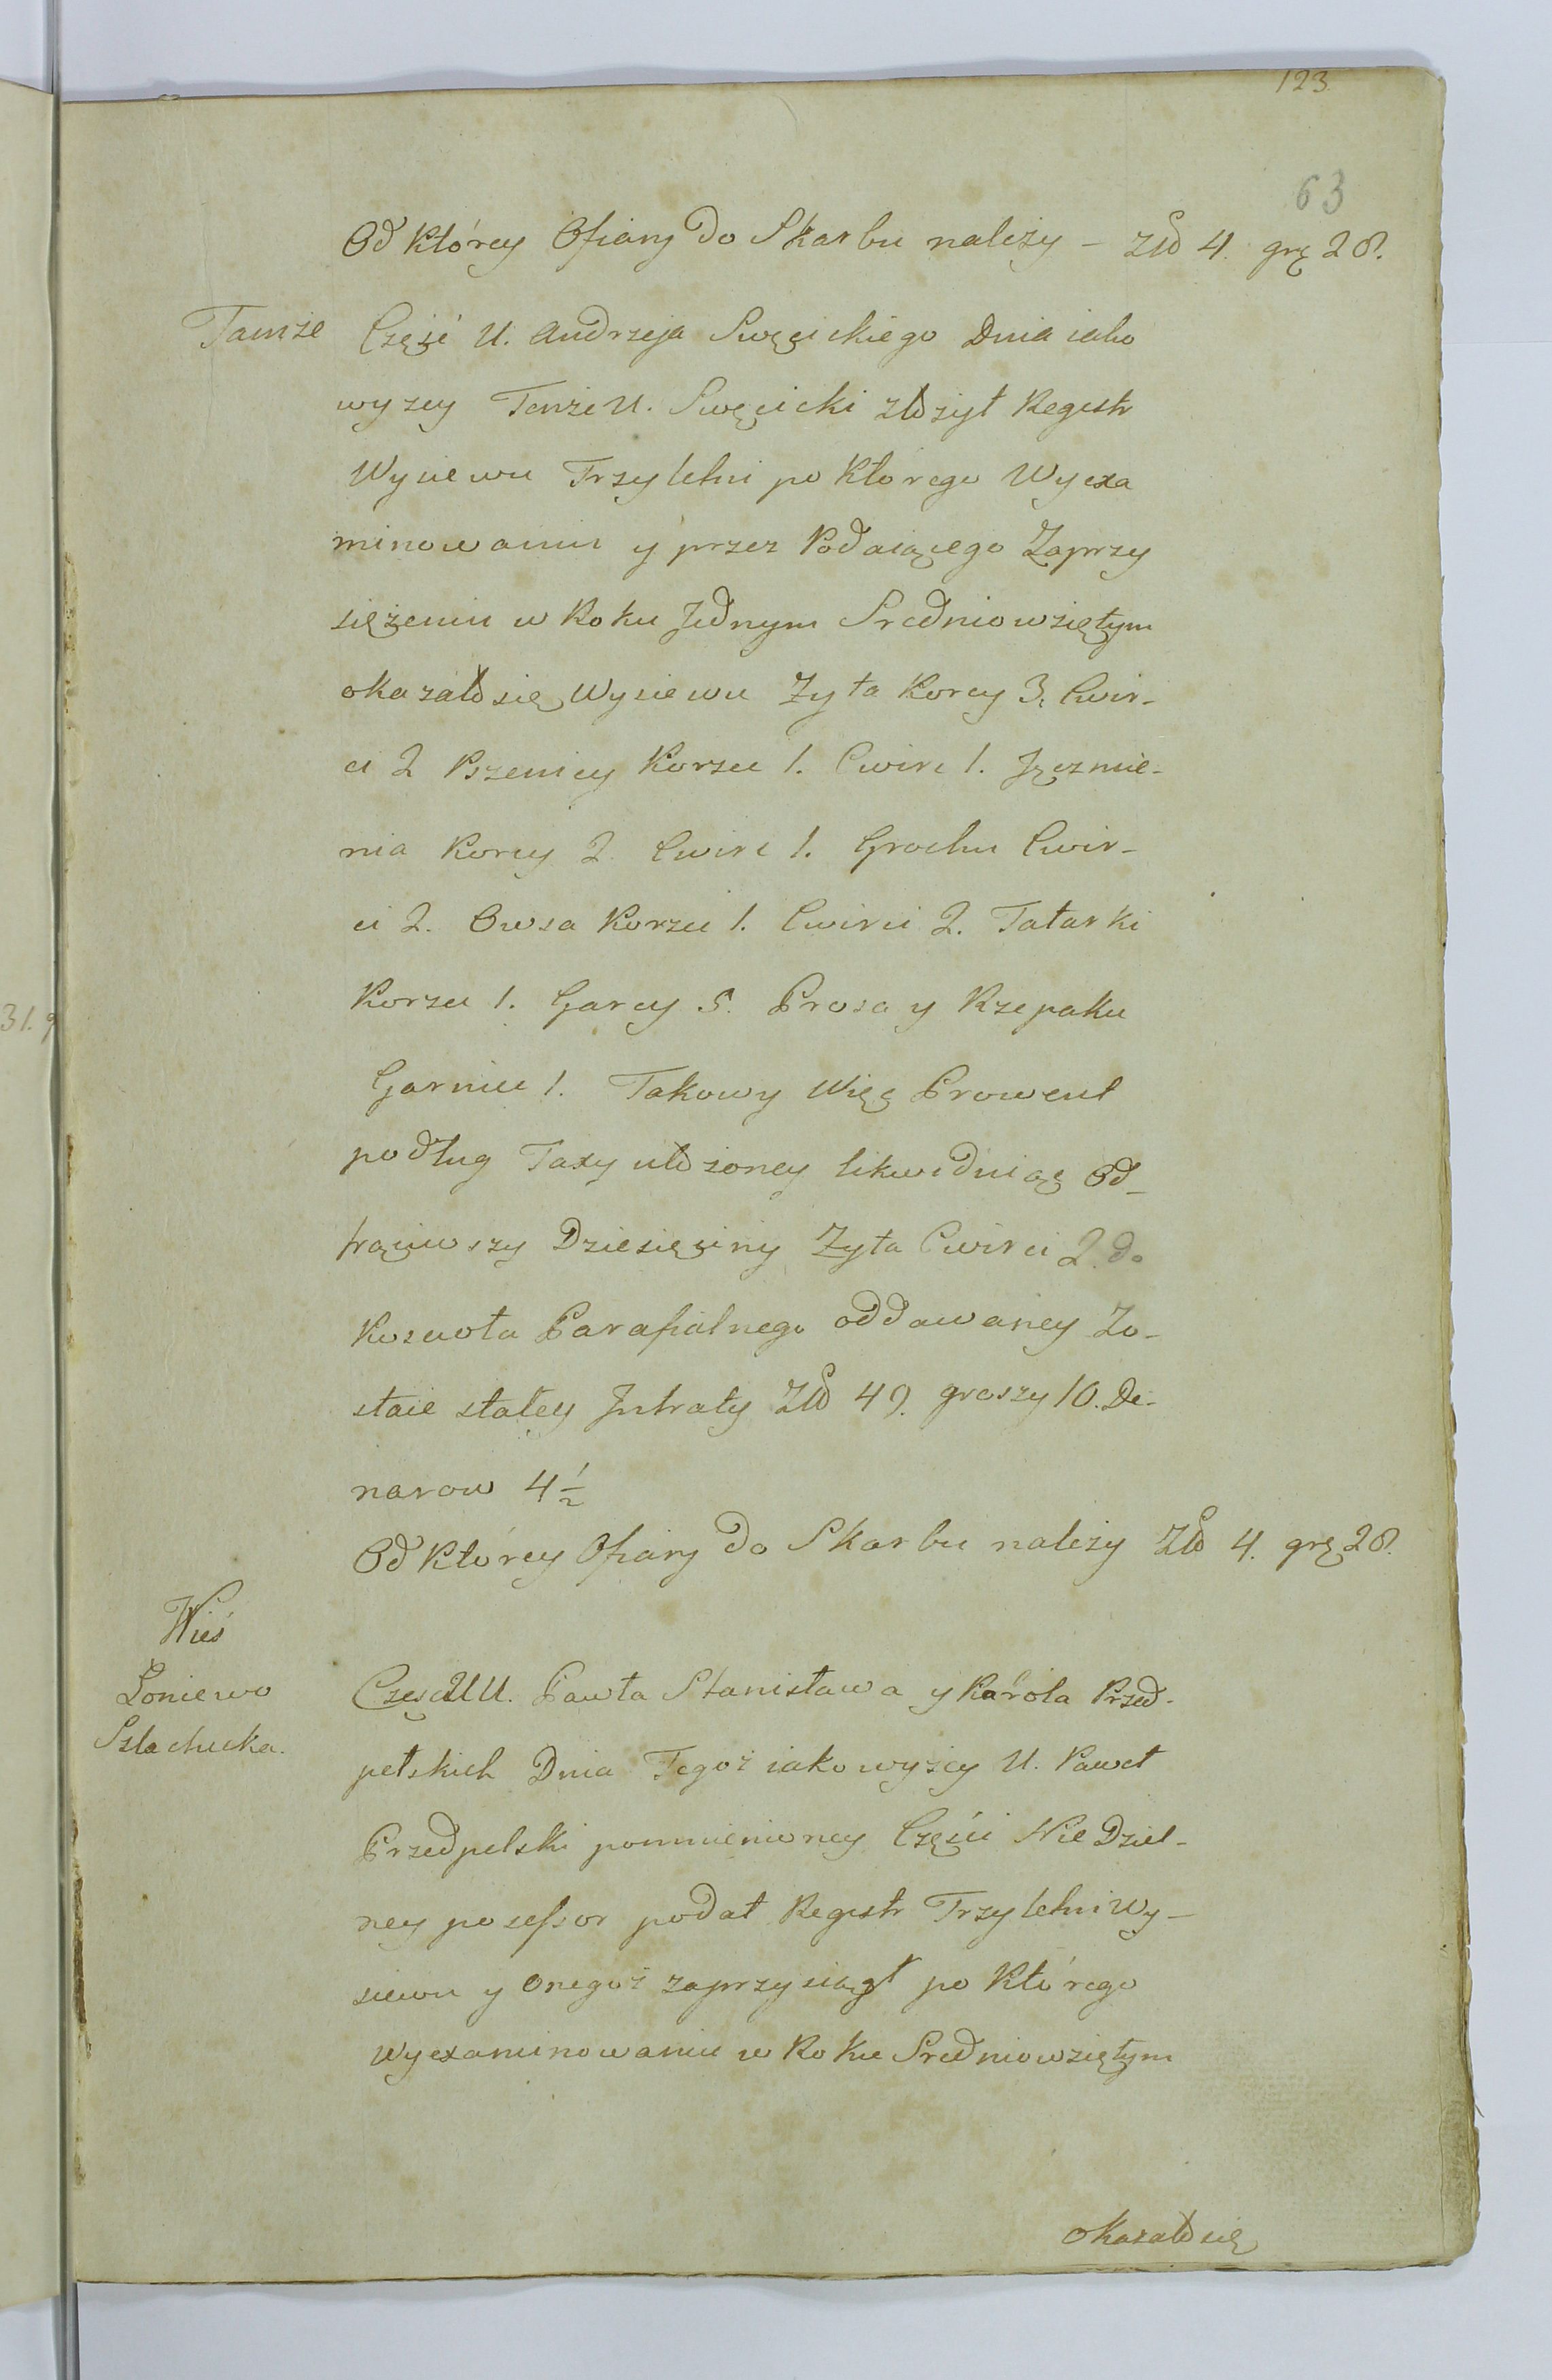 123.
63
Od Którey Ofiary do Skarbu należy – Zło 4. grę 28.
Tamże Część U. Andrzeja Swęcickiego Dnia iako
wyzey Tenże U. Swęcicki złożył Regestr
Wysiewu Trzyletni po Którego Wyexa
minowaniu y przez Podaiącego Zaprzy
siężeniu w Roku Jednym Srednio wziętym
okazało się Wysiewu Zyta Korcy 3, Cwir-
ci 2 Pszenicy Korzec 1. Cwirc 1. Jęczmie-
nia Korcy 2. Cwirc 1. Grochu Cwir-
ci 2. Owsa Korzec 1. Cwirci 2. Tatarki
Korzec 1. Garcy 5. Prosa y Rzepaku
Garniec 1. Takowy Więc Prowent
podług Taxy ułożoney likwiduiąc Od-
trąciwszy Dziesięciny Zyta Cwirci 2. do
Koscioła Parafialnego oddawaney Zo-
staie stałey Jntraty Zło 49. groszy 10. De-
narow 4 1/2
Od Którey Ofiary do Skarbu należy Zło 4. grę 28.
Wieś
Łoniewo
Szlachecka.
Częsci UU. Pawła Stanisława y Karola Przed-
pełskich Dnia Tegoż iako wyżey U. Paweł
Przedpelski pomienioney Części Nie Dziel-
ney posessor podał Regestr Trzyletni Wy-
siewu y onegoż zaprzysiągł po Którego
Wyexaminowaniu w Roku Srednio wziętym
okazało się
31. 9